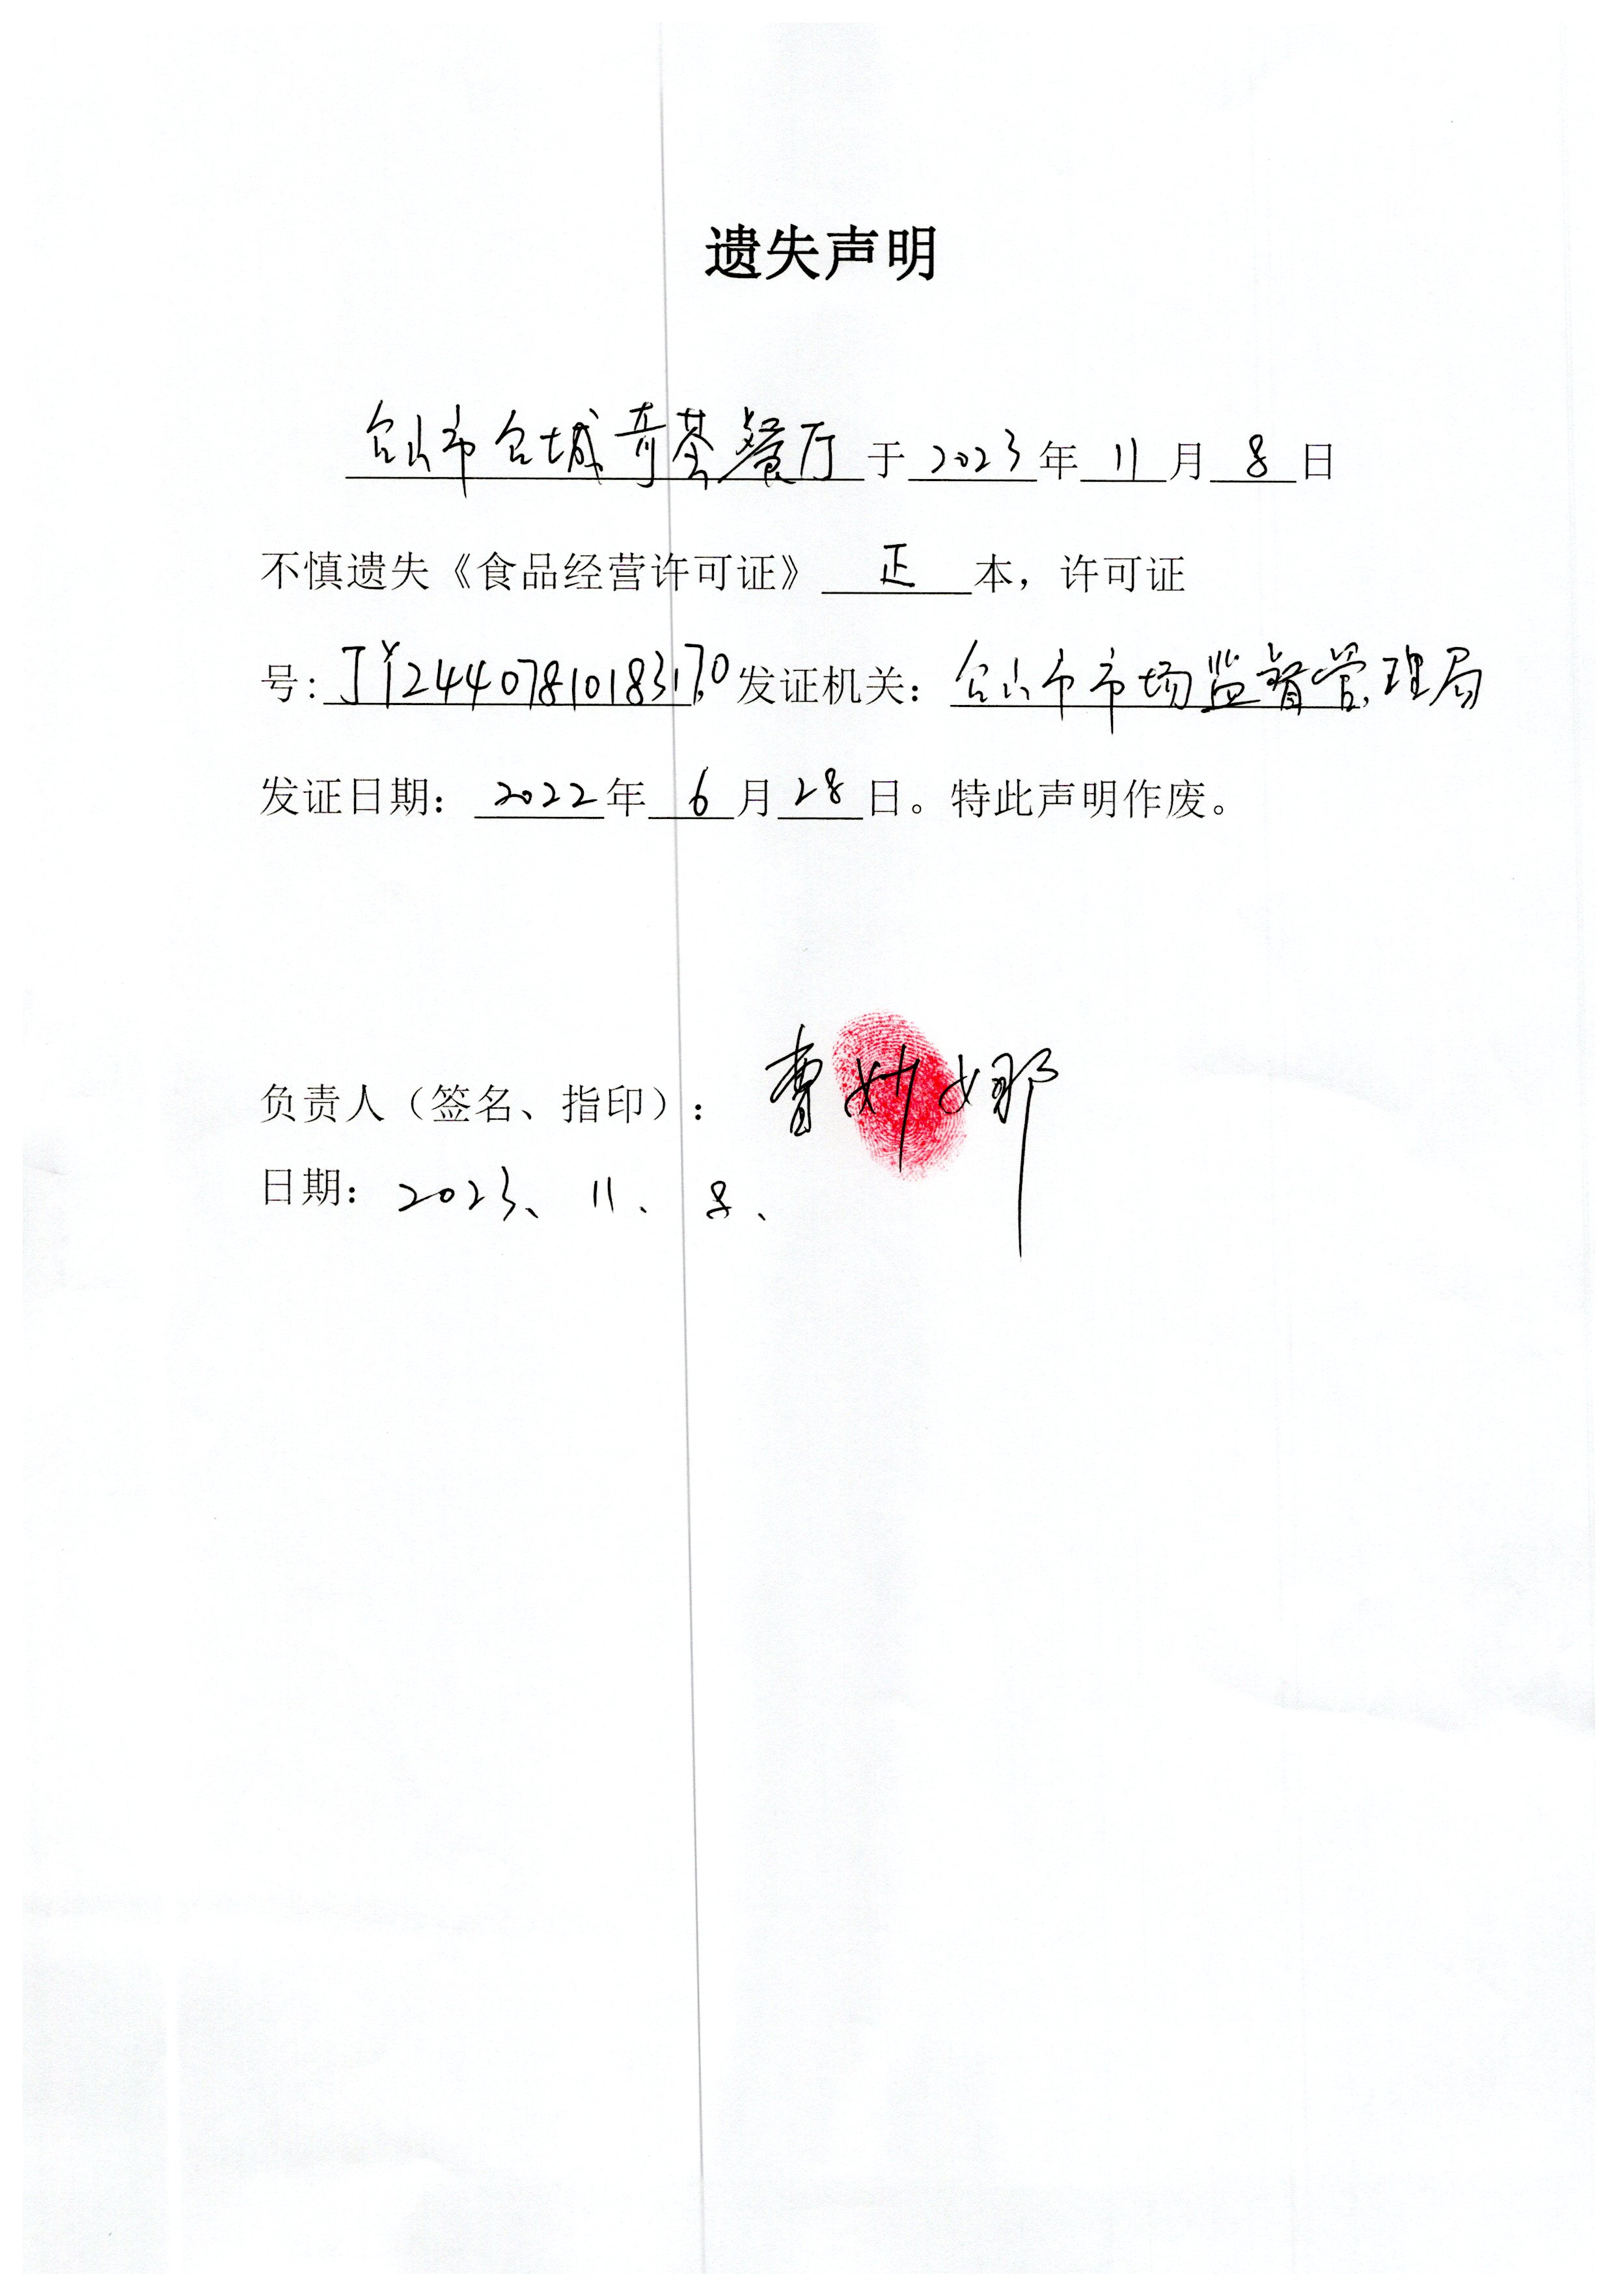 遗失声明
台山市台城奇荟餐厅于2023年11月8日
不慎遗失《食品经营许可证》正本，许可证
号：JY24407810183170发证机关：台山市市场监督管理局
发证日期：2022年6月28日。特此声明作废。
负责人（签名、指印）：曹妙娜
日期：2023、11、8、